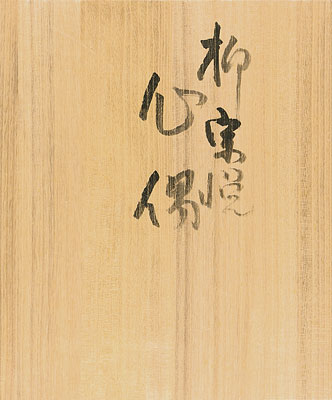 柳宗悦
心偈